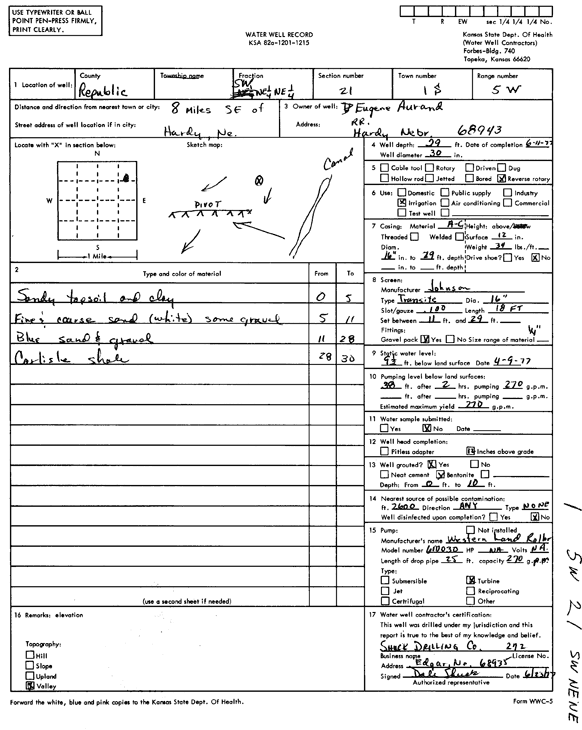 USE TYPEWRITER OR BALL
POINT PEN-PRESS FIRMLY,
PRINT CLEARLY.
WATER WELL RECORD
KSA 82a-1201-1215
T R EW sec 1/4 1/4 1/4 No.
Kansas State Dept. Of Health
(Water Well Contractors)
Forbes-Bldg. 740
Topeka, Kansas 66620
1 Location of well: County Township name Fraction Section number Town number Range number
Republic SW NE¼ NE¼ 21 1 S 5 W
Distance and direction from nearest town or city: 8 miles SE of
Street address of well location if in city: Hardy, Ne.
3 Owner of well: Eugene Aurand
Address: RR.
Hardy Nebr. 68943
Locate with "X" in section below: Sketch map:
N
W E
S
1 Mile
PIVOT
Canal
4 Well depth: 29 ft. Date of completion 6-11-77
Well diameter 30 in.
5 Cable tool Rotary Driven Dug
Hollow rod Jetted Bored X Reverse rotary
6 Use: Domestic Public supply Industry
X Irrigation Air conditioning Commercial
Test well
7 Casing: Material A-C Height: above/below
Threaded Welded Surface 12 in.
Diam. Weight 39 lbs./ft.
16" in. to 29 ft. depth Drive shoe? Yes X No
in. to ft. depth
8 Screen:
Manufacturer Johnson
Type Transite Dia. 16"
Slot/gauze .100 Length 18 FT
Set between 11 ft. and 29 ft.
Fittings: ¼"
Gravel pack X Yes No Size range of material
9 Static water level:
ft. below land surface Date 4-9-77
10 Pumping level below land surfaces:
ft. after 2 hrs. pumping 270 g.p.m.
ft. after hrs. pumping g.p.m.
Estimated maximum yield 270 g.p.m.
11 Water sample submitted:
Yes X No Date
12 Well head completion:
Pitless adapter Inches above grade
13 Well grouted? X Yes No
Neat cement X Bentonite
Depth: From 0 ft. to 10 ft.
14 Nearest source of possible contamination:
ft. 2600 Direction ANY Type NONE
Well disinfected upon completion? Yes X No
15 Pump: Not installed
Manufacturer's name Western Land Roller
Model number HP NA Volts NA
Length of drop pipe 25 ft. capacity 270 g.p.m.
Type:
Submersible X Turbine
Jet Reciprocating
Certrifugal Other
2 Type and color of material From To
Sandy topsoil and clay 0 5
Fine & coarse sand (white) some gravel 5 11
Blue sand & gravel 11 28
Carlisle shale 28 30
(use a second sheet if needed)
16 Remarks: elevation
Topography:
Hill
Slope
Upland
X Valley
17 Water well contractor's certification:
This well was drilled under my jurisdiction and this
report is true to the best of my knowledge and belief.
SHUCK DRILLING Co. 292
Business name License No.
Address Edgar, Ne. 68935
Signed Dale Shuck Date 6/23/77
Authorized representative
Forward the white, blue and pink copies to the Kansas State Dept. Of Health.
Form WWC-5
1 5W 21 SWNENE